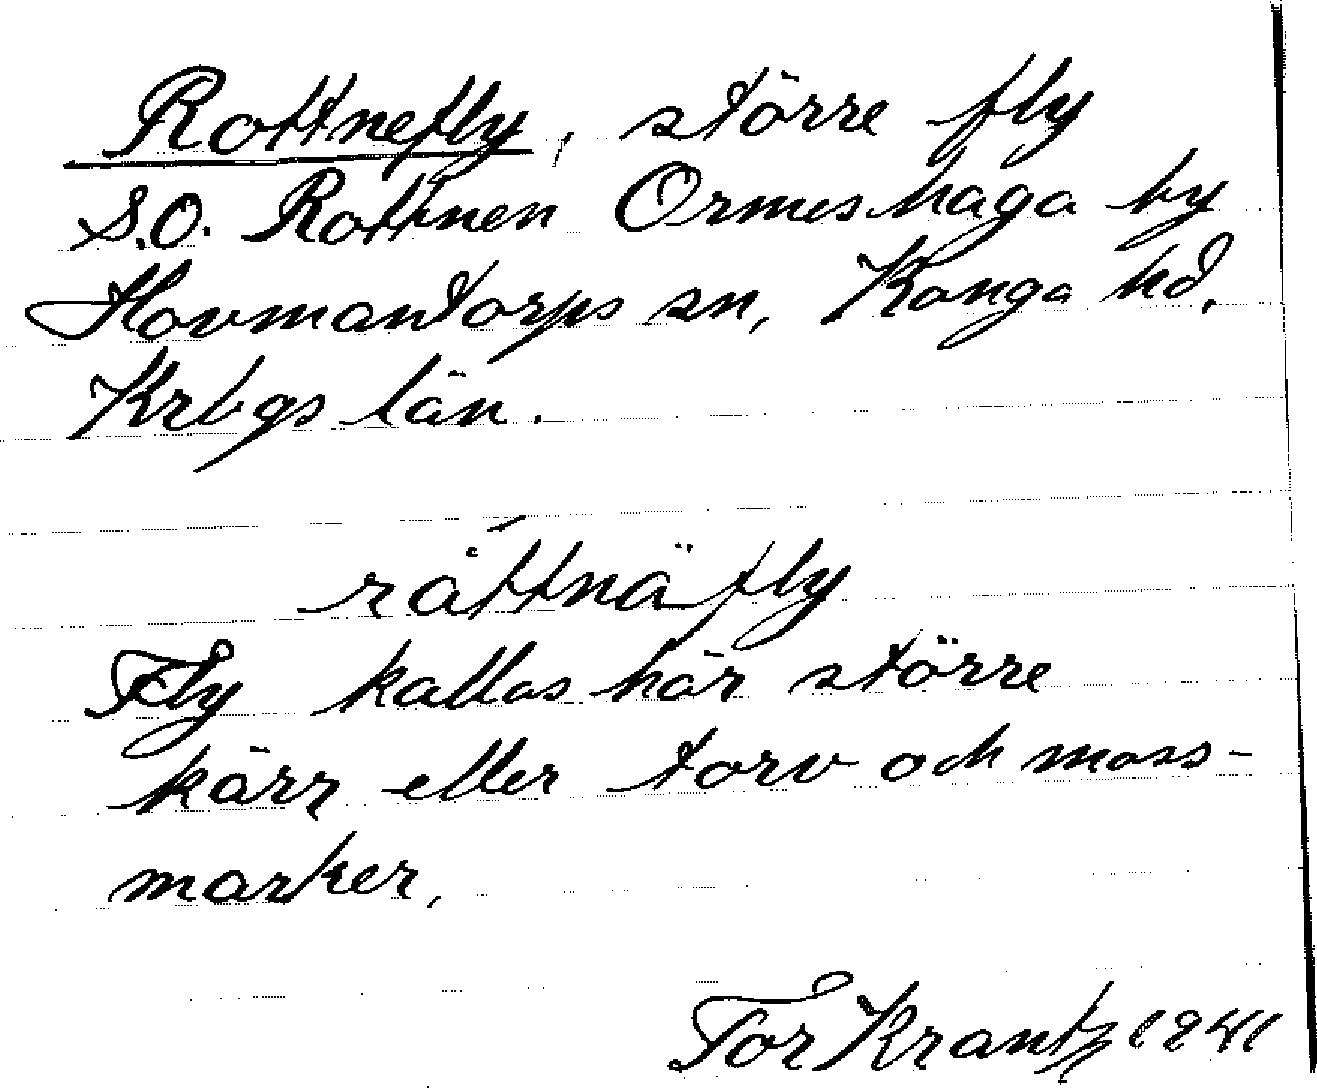 Rottnefly, större fly
S.O. Rottnen Ormeshaga by
Hovmantorps sn, Konga hd.
Krbgs län.
råttnäfly
Fly kallas här större
kärr eller torv och moss-
marker.
Tor Krantz 1941